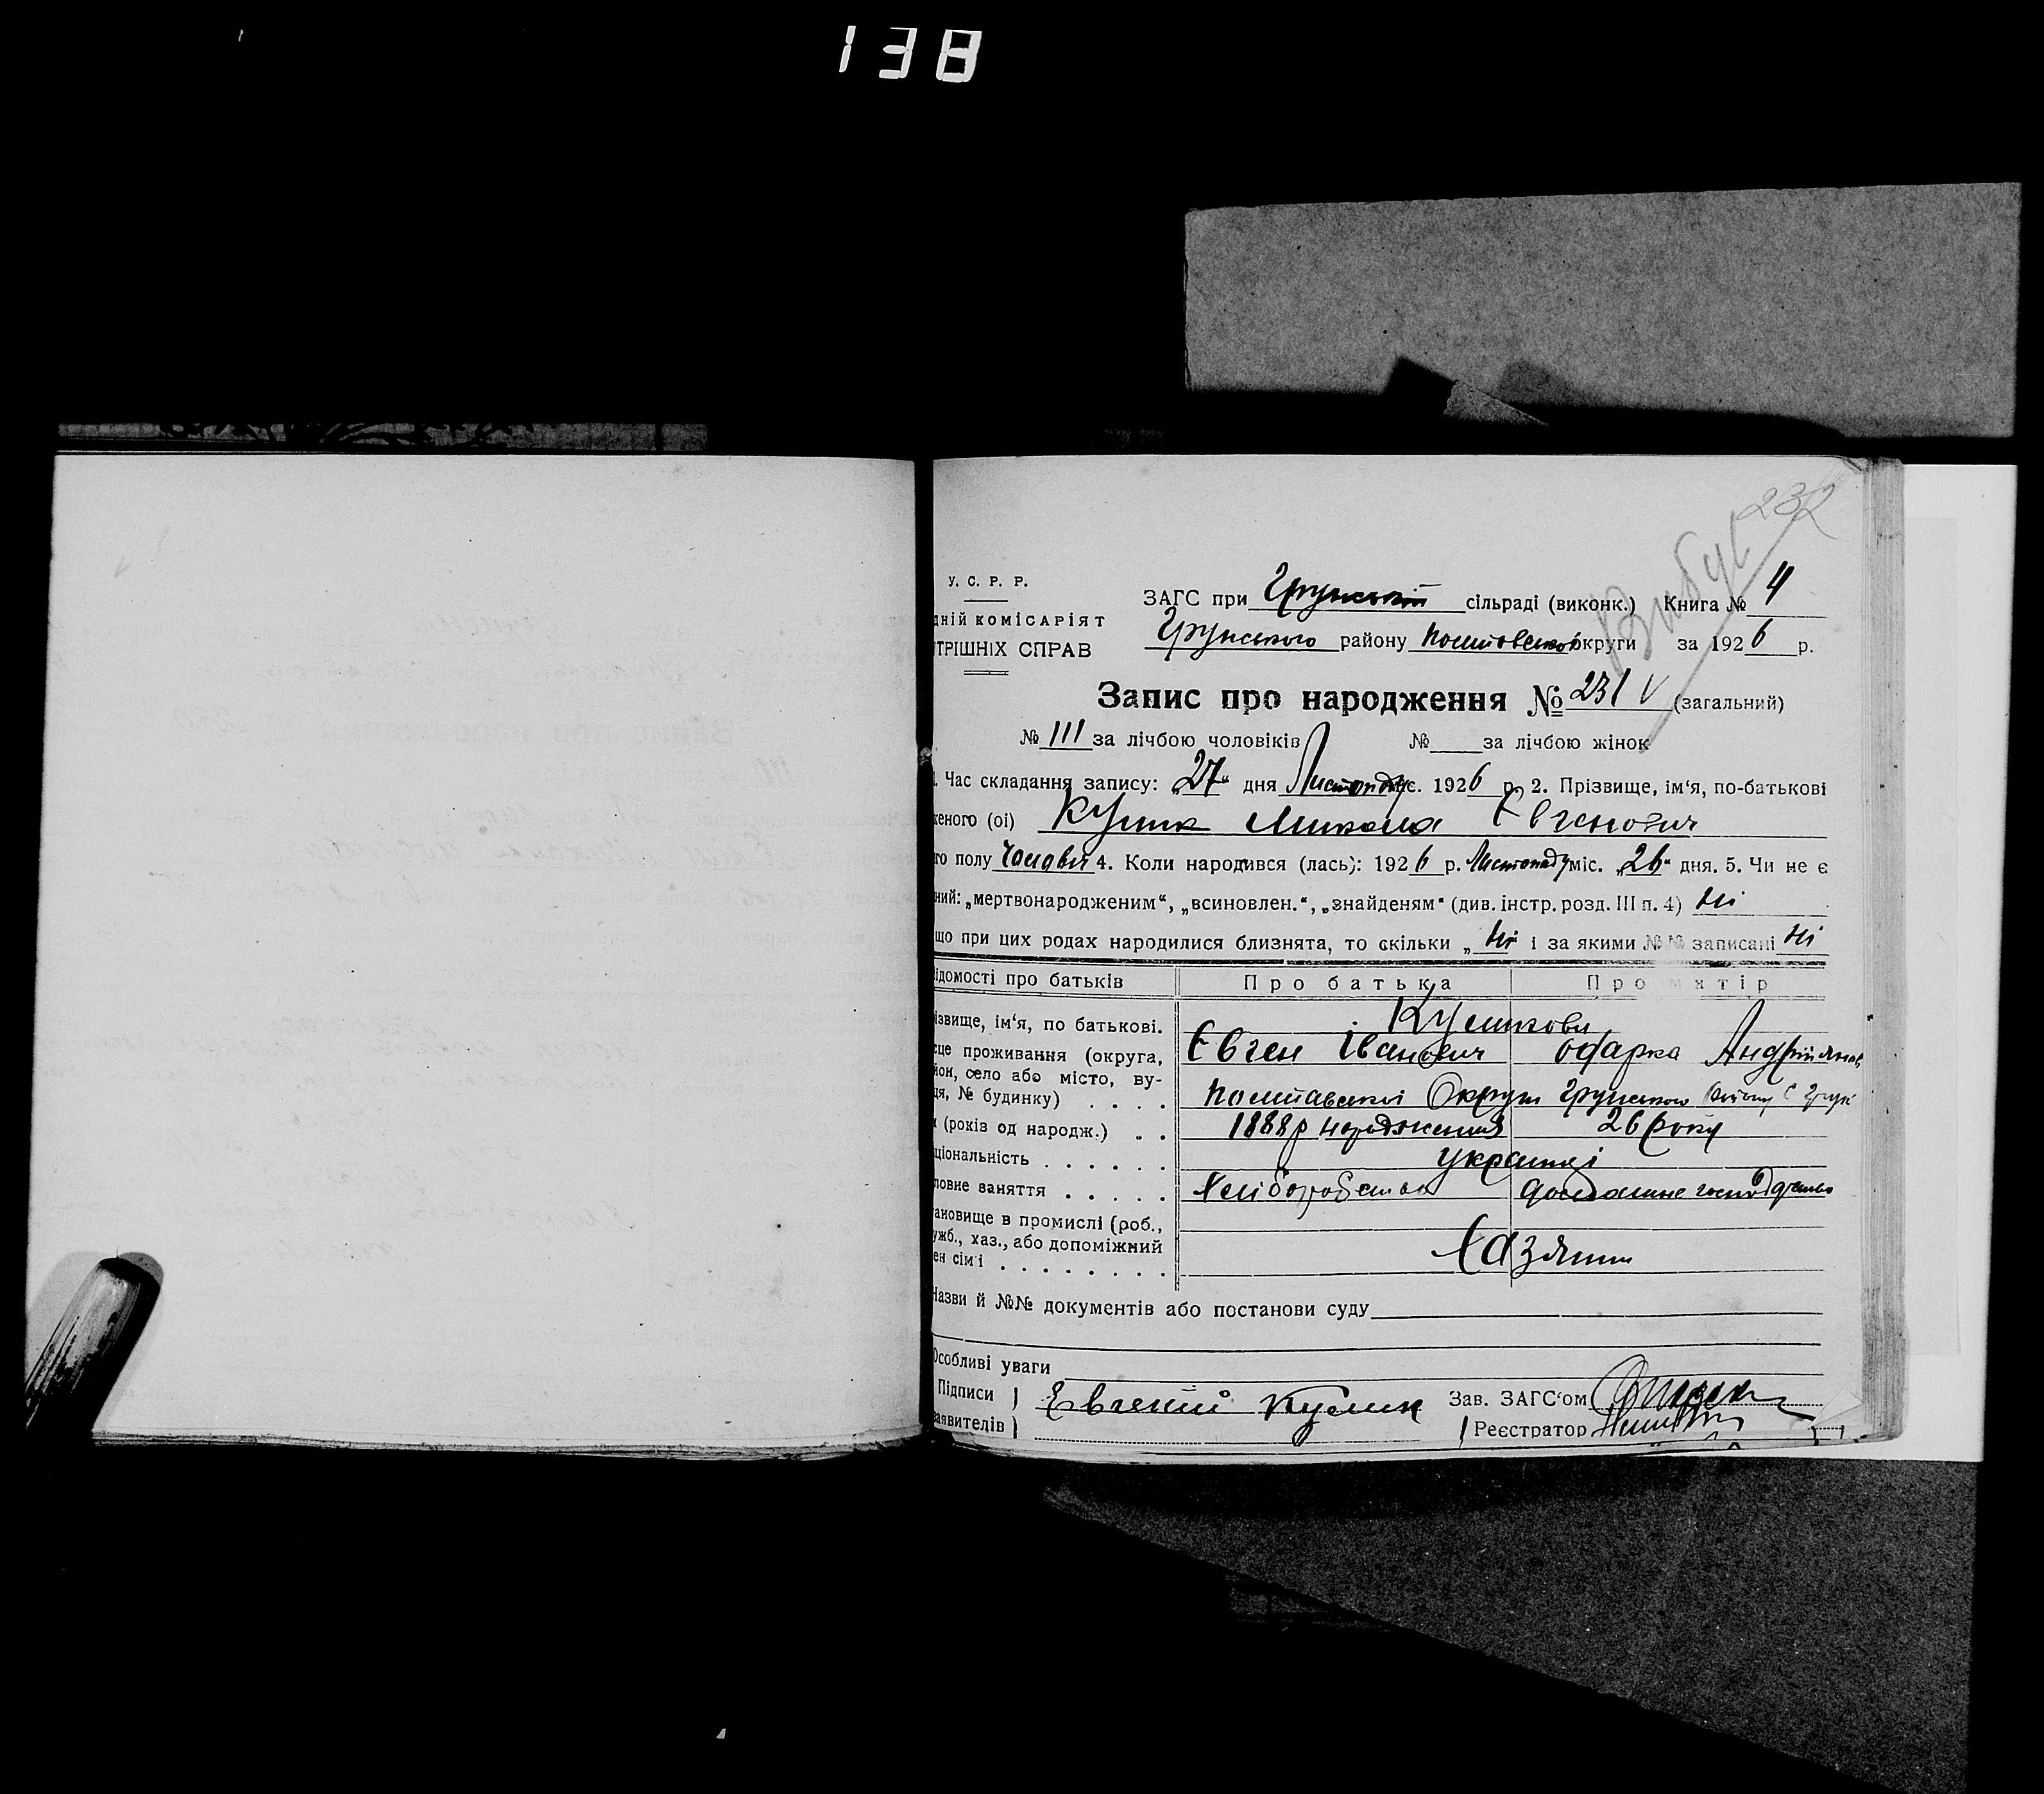 138
232
Вибув
У. С. Р. Р.
дній КОМІСАРІЯТ
ТРІШНІХ СПРАВ
ЗАГС при Грунській сільраді (виконк.) Книга № 4
Грунського району Полтавської округи за 1926 р.
Запис про народження № 231 V (загальний)
№ 111 за лічбою чоловіків № за лічбою жінок
1. Час складання запису: „27“ дня Листопаду с. 1926 р. 2. Прізвище, ім‘я, по-батькові
женого (ої) Кулик Микола Євгенович
го полу Чолов 4. Коли народився (лась): 1926 р. Листопаду міс. „26“ дня. 5. Чи не є
ний: „мертвонародженим“, „всиновлен.“, „знайденям“ (див. інстр. розд. III п. 4) Ні
що при цих родах народилися близнята, то скільки „ Ні і за якими №№ записані Ні
ідомості про батьків Про батька Про матір
ізвище, ім‘я, по батькові. Куликови
сце проживання (округа, Євген Іванович Одарка Андріянов
йон, село або місто, ву-
ця, № будинку) . . . . Полтавської Округи Грунського Району С Грунь
и (років од народж.) . . 1888 р народження 26 року
ціональність . . . . . . Українці
ловне заняття . . . . . Хліборобство домашне господарство
тановище в промислі (роб.,
ужб., хаз., або допоміжний Хазяини
ен сім‘ї . . . . . . . .
Назви й №№ документів або постанови суду
Особливі уваги
Підписи Евгений Кулик Зав. ЗАГС‘ом
заявителів Реєстратор